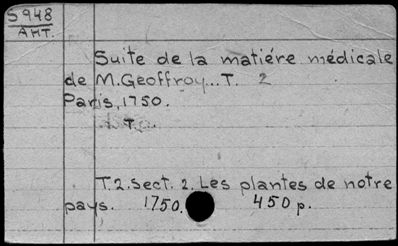 S 948
АНТ.
Suite de la matiére médicale
de M.Geoffroy...T. 2
Paris,1750.
T.
T.2.sect. 2. Les plantes de notre
pays. 1750. 450 p.